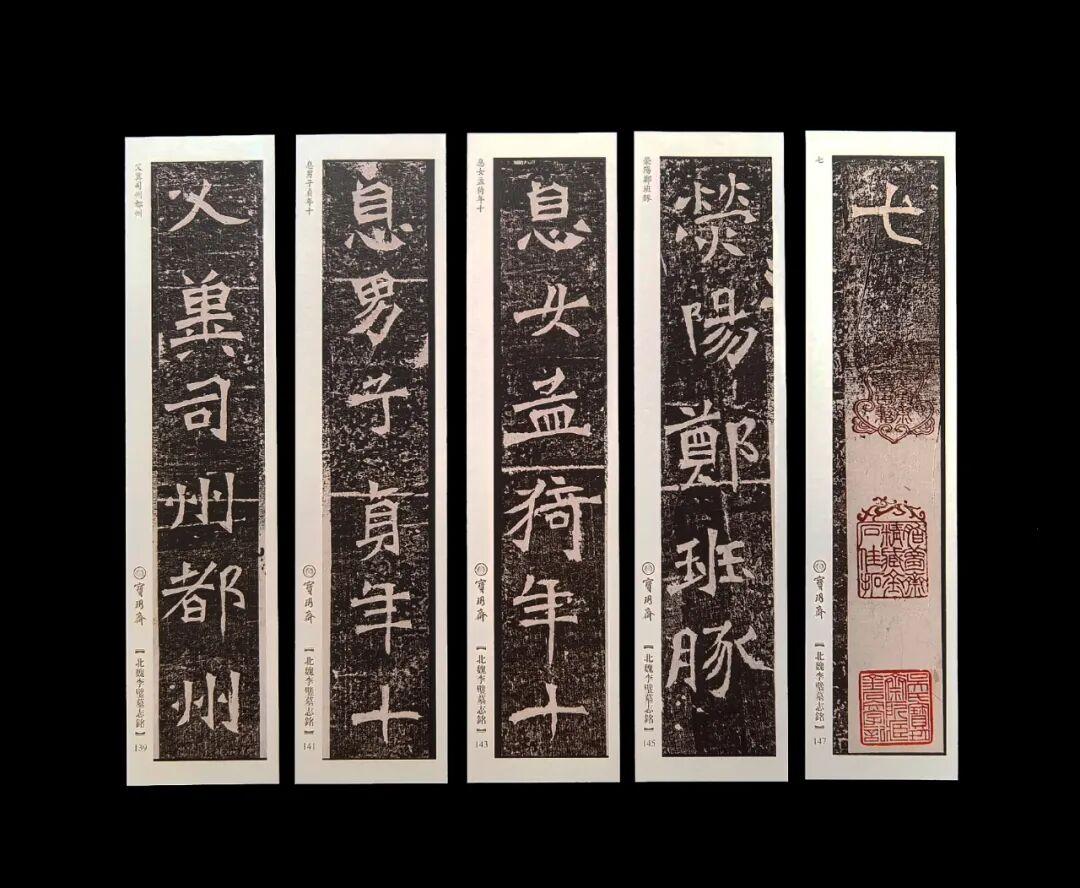 父冀司州都州
父冀司州都州
寶玥齋
【北魏李璧墓志銘】
139
息男子貞年十
息男子貞年十
寶玥齋
【北魏李璧墓志銘】
141
息女孟猗年十
息女孟猗年十
寶玥齋
【北魏李璧墓志銘】
143
滎陽鄭班豚
滎陽鄭班豚
寶玥齋
【北魏李璧墓志銘】
145
七
七
寶玥齋
【北魏李璧墓志銘】
147